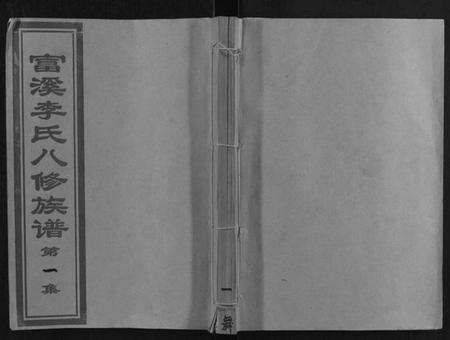 富溪李氏八修族谱 第一集
一